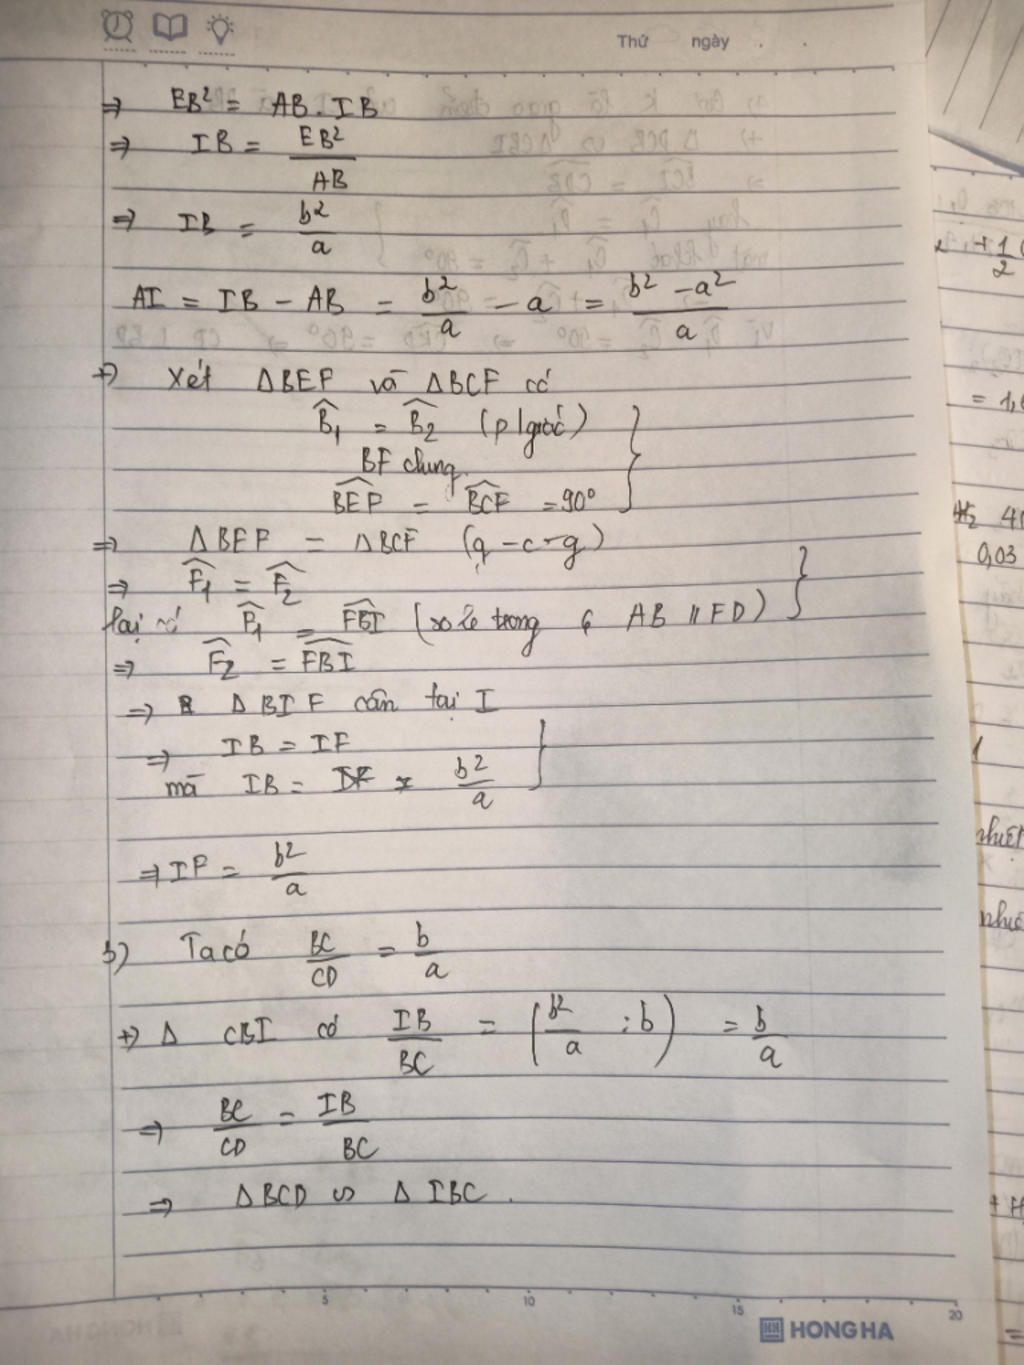 Thứ ngày
⇒ EB² = AB . IB
⇒ IB = EB²/AB
⇒ IB = b²/a
AI = IB − AB = b²/a − a = (b² − a²)/a
+) Xét ΔBEF và ΔBCF có
B̂₁ = B̂₂ (p/giác)
BF chung
BEF = BCF = 90°
⇒ ΔBEF = ΔBCF (g-c-g)
⇒ F̂₁ = F̂₂
lại có F̂₁ = FBI (so le trong AB // FD)
⇒ F̂₂ = FBI
⇒ Δ BIF cân tại I
⇒ IB = IF
mà IB = b²/a
⇒ IF = b²/a
b) Ta có BC/CD = b/a
+) Δ CBI có IB/BC = (b²/a : b) = b/a
⇒ BC/CD = IB/BC
⇒ ΔBCD ∽ ΔIBC.
5 10 15 20
HONG HA